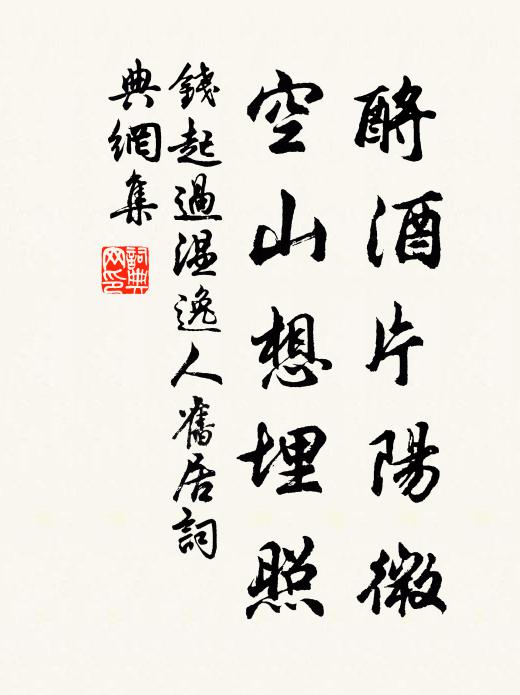 酹酒片陽微
空山想埋照
錢起過溫逸人舊居詞
典網集
詞典
网印